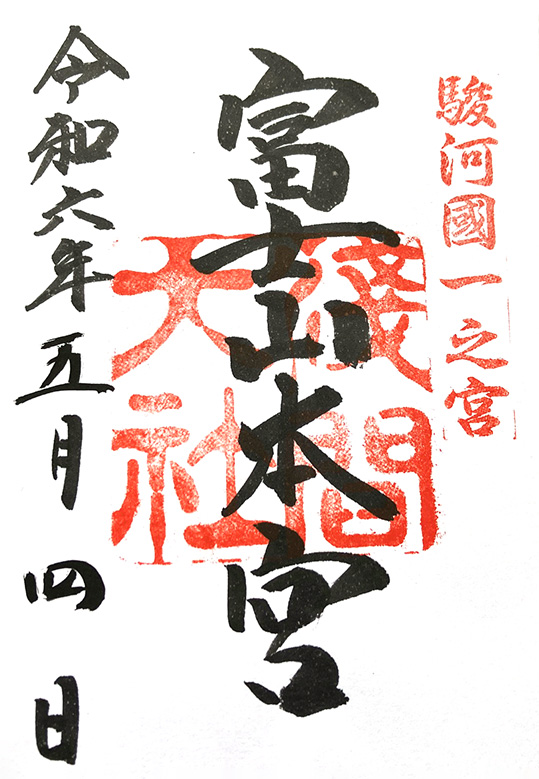 駿河國一之宮
富士山本宮
淺間
大社
令和六年五月四日